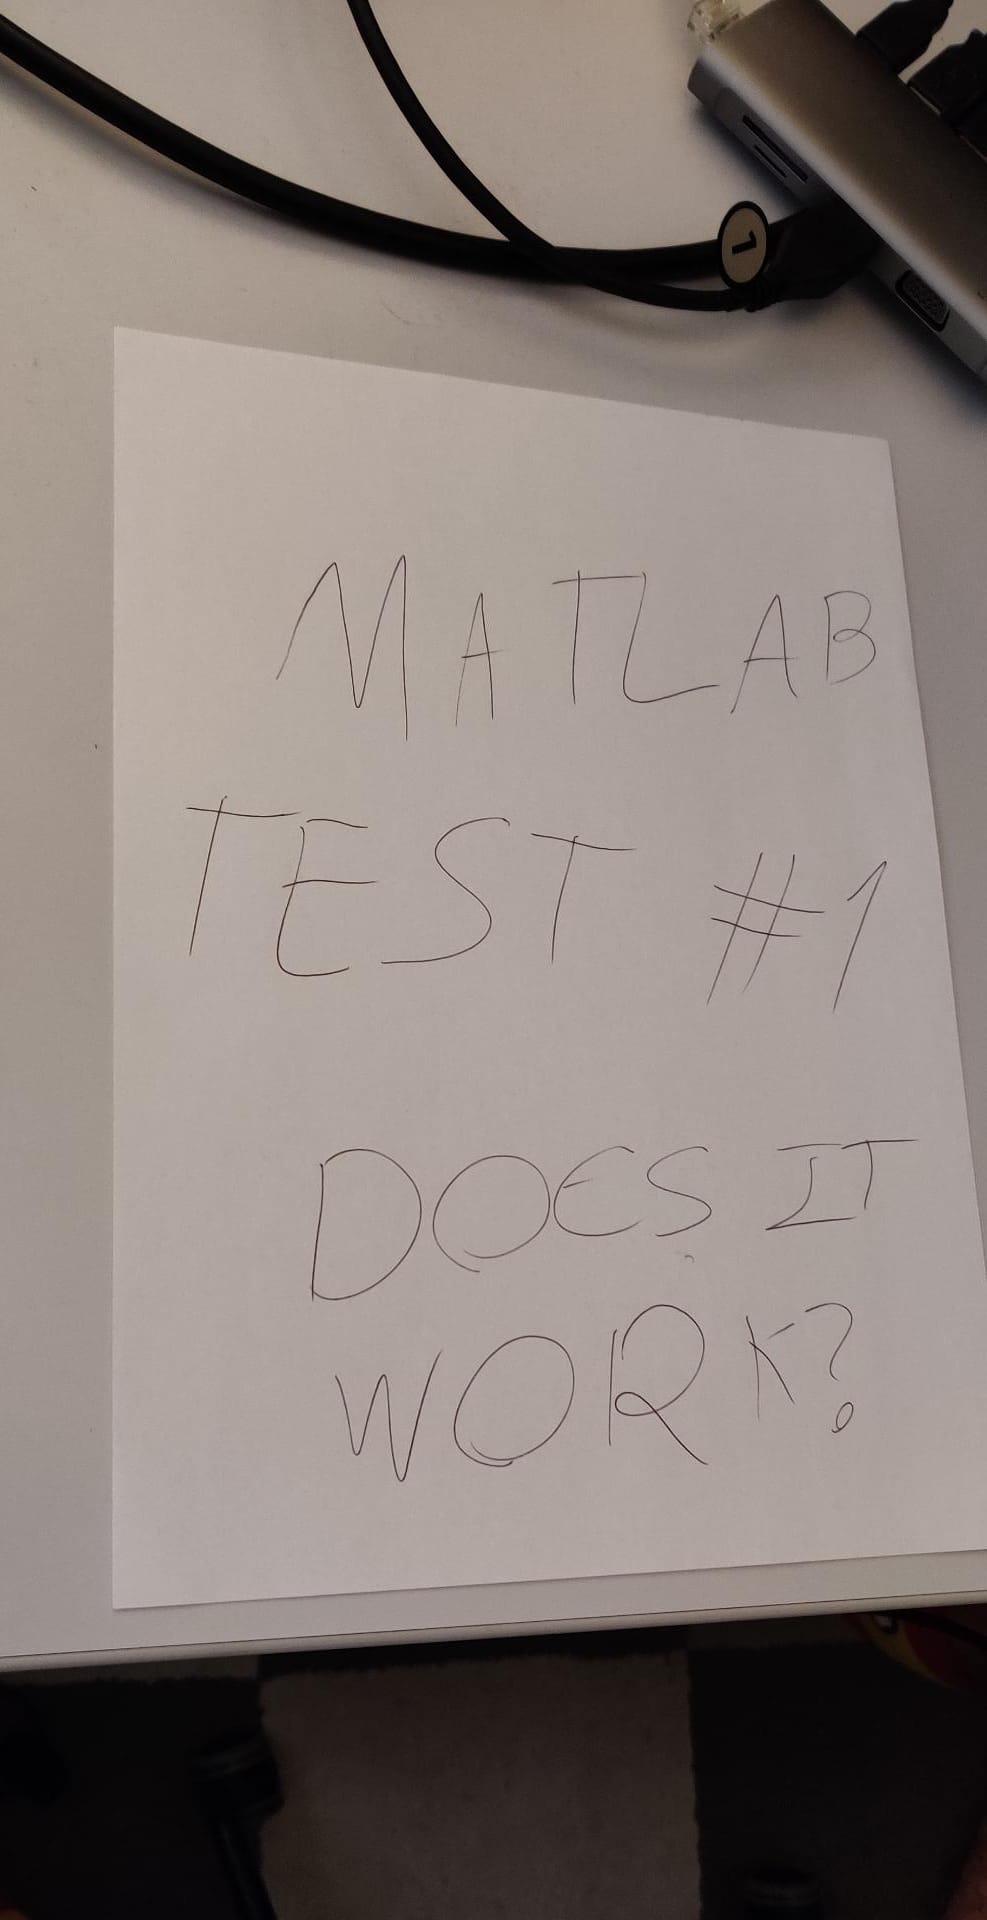 1
MATLAB
TEST #1
DOES IT
WORK?